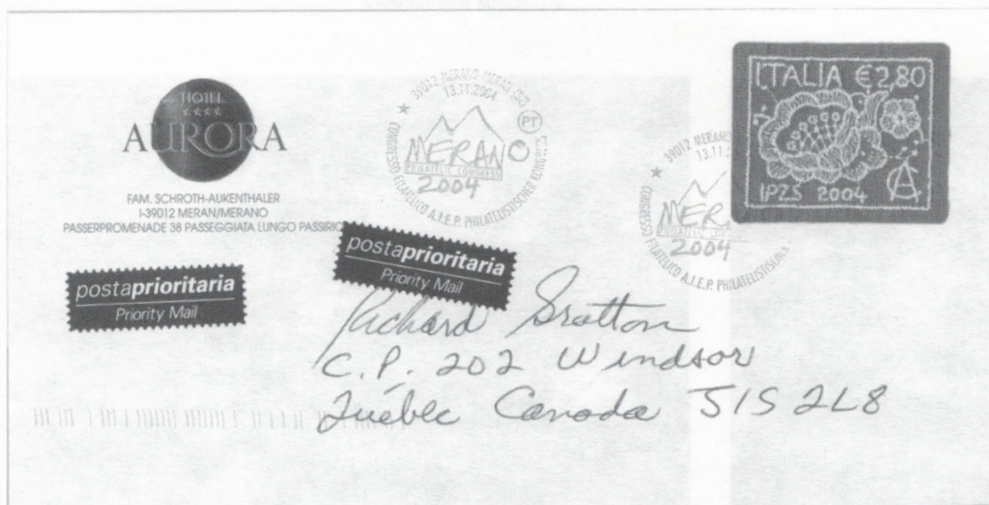 HOTEL
AURORA
FAM. SCHROTH-AUKENTHALER
I-39012 MERAN/MERANO
PASSERPROMENADE 38 PASSEGGIATA LUNGO PASSIRIO
postaprioritaria
Priority Mail
39012 MERANO-MERAN (BZ)
13.11.2004
PT
MERANO
PHILATELIC CONGRESS
2004
CONGRESSO FILATELICO A.I.E.P. PHILATELISTISCHER KONGRESS
postaprioritaria
Priority Mail
39012 MERANO
13.11.2
MER
2004
CONGRESSO FILATELICO A.I.E.P. PHILATELISTISCHER
ITALIA €2,80
IPZS 2004
Richard Gratton
C.P. 202 Windsor
Québec Canada J1S 2L8